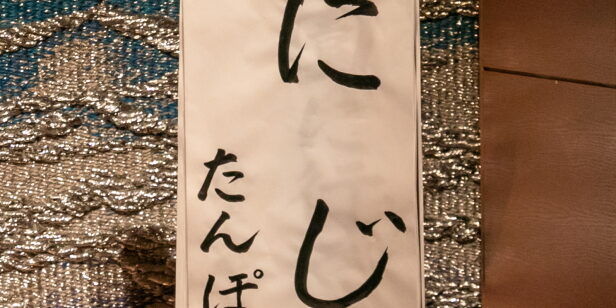 にじ
たんぽ